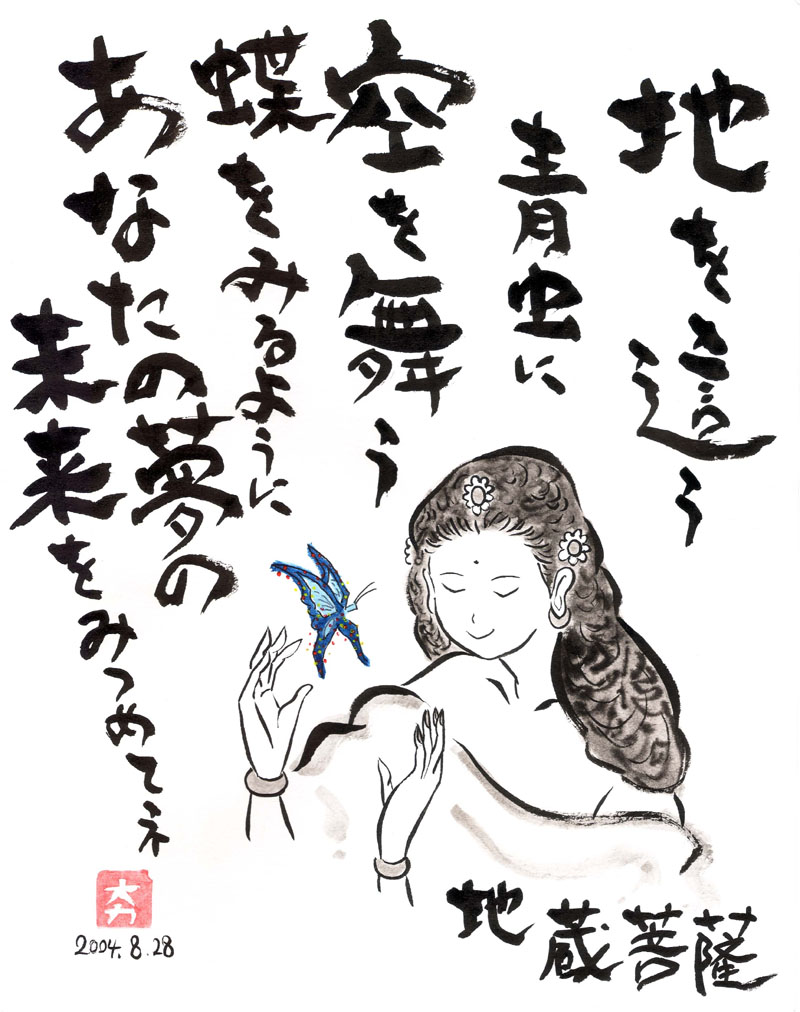 地を這う
青虫に
空を舞う
蝶をみるように
あなたの夢の
未来をみつめてネ
地蔵菩薩
大力
2004.8.28